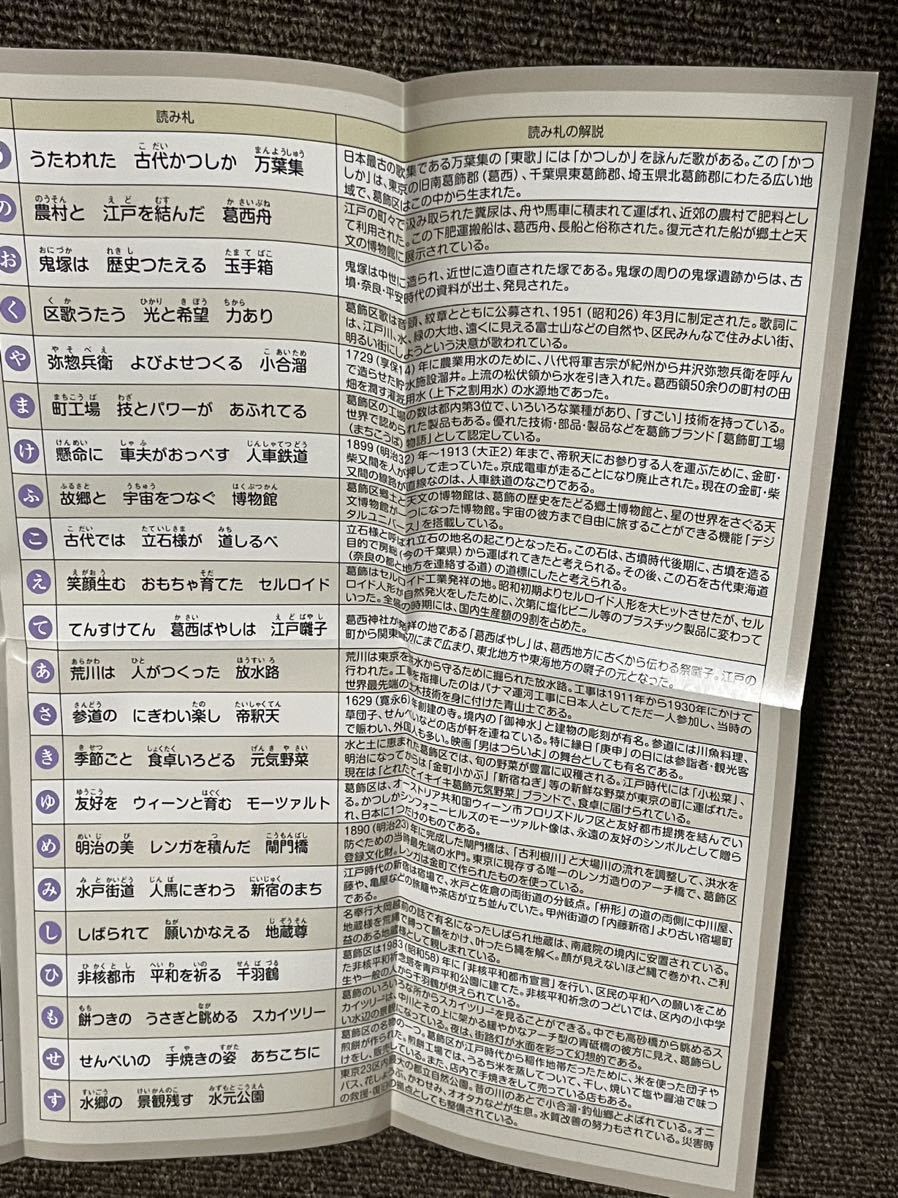 読み札
読み札の解説
うたわれた 古代かつしか 万葉集
日本最古の歌集である万葉集の「東歌」には「かつしか」を詠んだ歌がある。この「かつ
しか」は、東京の旧南葛飾郡(葛西)、千葉県東葛飾郡、埼玉県北葛飾郡にわたる広い地
域で、葛飾区はこの中から生まれた。
の
農村と 江戸を結んだ 葛西舟
江戸の町々で汲み取られた糞尿は、舟や馬車に積まれて運ばれ、近郊の農村で肥料とし
て利用された。この下肥運搬船は、葛西舟、長船と俗称された。復元された船が郷土と天
文の博物館に展示されている。
お
鬼塚は 歴史つたえる 玉手箱
鬼塚は中世に造られ、近世に造り直された塚である。鬼塚の周りの鬼塚遺跡からは、古
墳・奈良・平安時代の資料が出土、発見された。
く
区歌うたう 光と希望 力あり
葛飾区歌は音頭、紋章とともに公募され、1951(昭和26)年3月に制定された。歌詞に
は、江戸川、水、緑の大地、遠くに見える富士山などの自然や、区民みんなで住みよい街、
明るい街にしようという決意が歌われている。
や
弥惣兵衛 よびよせつくる 小合溜
1729(享保14)年に農業用水のために、八代将軍吉宗が紀州から井沢弥惣兵衛を呼ん
で造らせた貯水施設溜井。上流の松伏領から水を引き入れた。葛西領50余りの町村の田
畑を潤す灌漑用水(上下之割用水)の水源地であった。
ま
町工場 技とパワーが あふれてる
葛飾区の工場の数は都内第3位で、いろいろな業種があり、「すごい」技術を持っている。
世界で認められた製品もある。優れた技術・部品・製品などを葛飾ブランド「葛飾町工場
(まちこうば)物語」として認定している。
け
懸命に 車夫がおっぺす 人車鉄道
1899(明治32)年～1913(大正2)年まで、帝釈天にお参りする人を運ぶために、金町・
柴又間を人が押して走っていた。京成電車が走ることになり廃止された。現在の金町・柴
又間の線路が直線なのは、人車鉄道のなごりである。
ふ
故郷と 宇宙をつなぐ 博物館
葛飾区郷土と天文の博物館は、葛飾の歴史をたどる郷土博物館と、星の世界をさぐる天
文博物館が一つになった博物館。宇宙の彼方まで自由に旅することができる機能「デジ
タルユニバース」を搭載している。
こ
古代では 立石様が 道しるべ
立石様と呼ばれ立石の地名の起こりとなった石。この石は、古墳時代後期に、古墳を造る
目的で房総(今の千葉県)から運ばれてきたと考えられる。その後、この石を古代東海道
(奈良の都と地方を連絡する道)の道標にしたと考えられる。
え
笑顔生む おもちゃ育てた セルロイド
葛飾はセルロイド工業発祥の地。昭和初期よりセルロイド人形を大ヒットさせたが、セル
ロイド人形が自然発火をしたために、次第に塩化ビニル等のプラスチック製品に変わって
いった。全盛の時期には、国内生産額の9割を占めた。
て
てんすけてん 葛西ばやしは 江戸囃子
葛西神社が発祥の地である「葛西ばやし」は、葛西地方に古くから伝わる祭囃子。江戸の
町から関東一円にまで広まり、東北地方や東海地方の囃子の元となった。
あ
荒川は 人がつくった 放水路
荒川は東京を洪水から守るために掘られた放水路。工事は1911年から1930年にかけて
行われた。工事を指揮したのはパナマ運河工事に日本人としてただ一人参加し、当時の
世界最先端の土木技術を身に付けた青山士である。
さ
参道の にぎわい楽し 帝釈天
1629(寛永6)年創建の寺。境内の「御神水」と建物の彫刻が有名。参道には川魚料理、
草団子、せんべいなどの店が軒を連ねている。特に縁日「庚申」の日には参詣者・観光客
で賑わい、外国人も多い。映画「男はつらいよ」の舞台としても有名である。
き
季節ごと 食卓いろどる 元気野菜
水と土に恵まれた葛飾区では、旬の野菜が豊富に収穫される。江戸時代には「小松菜」、
明治になってからは「金町小かぶ」「新宿ねぎ」等の新鮮な野菜が東京の町に運ばれた。
現在は「とれたてイキイキ葛飾元気野菜」ブランドで、食卓に届けられている。
ゆ
友好を ウィーンと育む モーツァルト
葛飾区は、オーストリア共和国ウィーン市フロリズドルフ区と友好都市提携を結んでい
る。かつしかシンフォニーヒルズのモーツァルト像は、永遠の友好のシンボルとして贈ら
れ、日本に1つだけのものである。
め
明治の美 レンガを積んだ 閘門橋
1890(明治23)年に完成した閘門橋は、「古利根川」と大場川の流れを調整して、洪水を
防ぐための当時最先端の水門。東京に現存する唯一のレンガ造りのアーチ橋で、葛飾区
登録文化財。レンガは金町で作られたものを使っている。
み
水戸街道 人馬にぎわう 新宿のまち
江戸時代の新宿は宿場で、水戸と佐倉の両街道の分岐点。「枡形」の道の両側に中川屋、
藤や、亀屋などの旅籠や茶店が立ち並んでいた。甲州街道の「内藤新宿」より古い宿場町
である。
し
しばられて 願いかなえる 地蔵尊
名奉行大岡越前の話で有名になったしばられ地蔵は、南蔵院の境内に安置されている。
地蔵様を荒縄で縛って願をかけ、叶ったら縄を解く。顔が見えないほど縄で巻かれ、ご利
益のある地蔵様として親しまれている。
ひ
非核都市 平和を祈る 千羽鶴
葛飾区は1983(昭和58)年に「非核平和都市宣言」を行い、区民の平和への願いをこめ
た非核平和祈念塔を青戸平和公園に建てた。非核平和祈念のつどいでは、区内の小中学
生や一般の人から千羽鶴が供えられている。
も
餅つきの うさぎと眺める スカイツリー
葛飾のいろいろな所からスカイツリーを見ることができる。中でも高砂橋から眺めるス
カイツリーは、中川とその上に架かる緩やかなアーチ型の青砥橋の彼方に見え、葛飾らし
い水辺の景観になっている。夜は、街路灯が水面を彩って幻想的である。
せ
せんべいの 手焼きの姿 あちこちに
葛飾区の名物の一つ。葛飾区が江戸時代から稲作地帯だったために、米を使った団子や
煎餅が作られた。煎餅工場では、うるち米を蒸してついて、干し、焼いて塩や醤油で味つ
けをし、販売している。また、店内で手焼きをして売っている店もある。
す
水郷の 景観残す 水元公園
東京23区内最大の都立自然公園。昔の川のあとで小合溜・釣仙郷とよばれている。オニ
バス、花しょうぶ、かわせみ、オオタカなどが生息。水質改善の努力もされている。災害時
の救援・復旧の拠点としても整備されている。